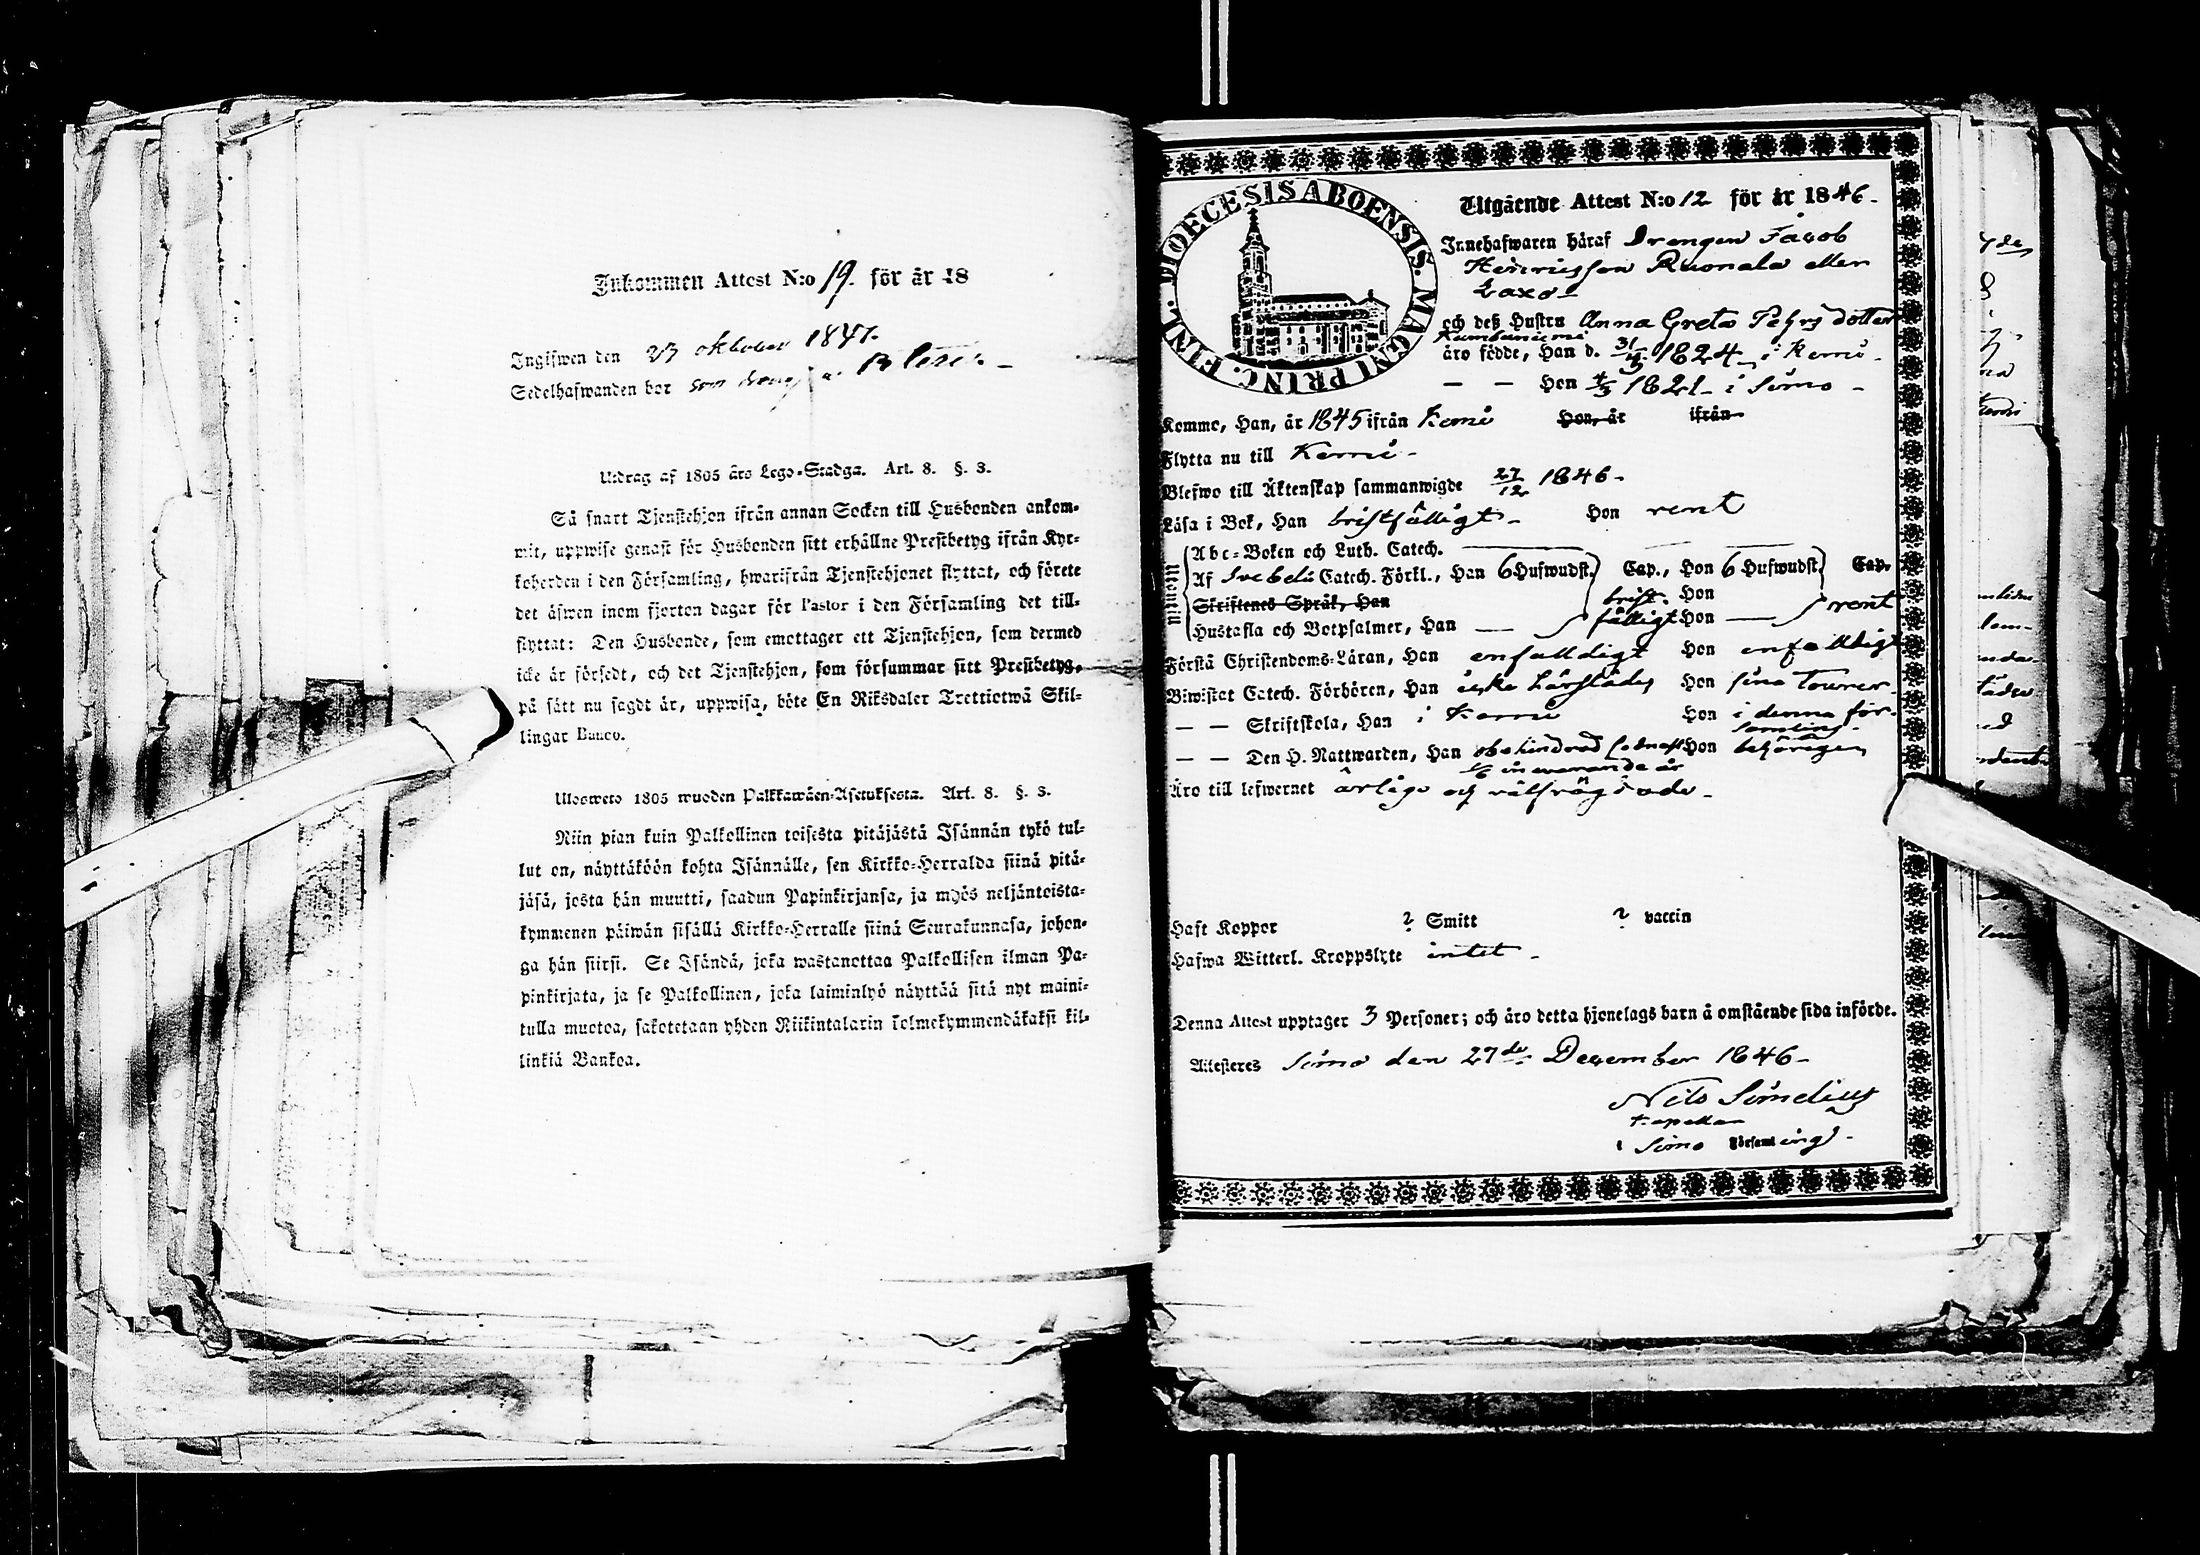 Inkommen Attest N:o 19. för år 18
Ingifwen den 23 oktober 1847.
Sedelhafwanden bor som dräng
Utdrag af 1805 års Lego-Stadga. Art. 8. §. 3.
Så snart Tjenstehjon ifrån annan Socken till Husbonden ankom-
mit, uppwise genast för Husbonden sitt erhållne Prestbetyg ifrån Kyr-
koherden i den Församling, hwarifrån Tjenstehjonet flyttat, och förete
det äfwen inom fjorton dagar för Pastor i den Församling det till-
flyttat: Den Husbonde, som emottager ett Tjenstehjon, som dermed
icke är försedt, och det Tjenstehjon, som försummar sitt Prestbetyg,
på sätt nu sagdt är, uppwisa, böte En Riksdaler Trettiotwå Skil-
lingar Banco.
Ulosweto 1805 wuoden Palkkawäen-Asetuksesta. Art. 8. §. 3.
Niin pian kuin Palkollinen toisesta pitäjästä Isännän tykö tul-
lut on, näyttäköön kohta Isännälle, sen Kirkko-Herralda siinä pitä-
jäsä, josta hän muutti, saadun Papinkirjansa, ja myös neljäntoista-
kymmenen päiwän sisällä Kirkko-Herralle siinä Seurakunnasa, johon-
ga hän siirsi. Se Isändä, joka wastanottaa Palkollisen ilman Pa-
pinkirjata, ja se Palkollinen, joka laiminlyö näyttää sitä nyt maini-
tulla muotoa, sakotetaan yhden Riikintalarin kolmekymmendäkaksi kil-
linkiä Bankoa.
DIOECESIS ABOENSIS. MAGNI PRINC. FINL.
Utgående Attest N:o 12 för år 1846.
Innehafwaren häraf Drengen Jacob
Henricsson Ruonala eller
Laxo
och deß Hustru Anna Greta Pehrs dotter
Kumbuniemi
äro födde, Han d. 31/3 1824 i Kemi.
— — Hon 4/3 1821 i Simo
Kommo, Han, år 1845 ifrån Kemi Hon, år ifrån
Flytta nu till Kemi
Blefwo till Äktenskap sammanwigde 27/12 1846.
Läsa i Bok, Han bristfälligt Hon rent
Utontill
Abc-Boken och Luth. Catech.
Af Svebeli Catech. Förkl., Han 6 Hufwudst. Cap., Hon 6 Hufwudst. Cap.
Skriftenes Språk, Han brist- Hon
Hustafla och Botpsalmer, Han — fälligt Hon — rent
Förstå Christendoms-Läran, Han enfaldigt Hon enfaldigt
Biwistat Catech. Förhören, Han Hon sina
— — Skriftskola, Han i Kemi Hon i denna för-
samling.
— — Den H. Nattwarden, Han obehindrad sednast Hon behörigen
1/6 innevarande år
Äro till lefwernet ärlige och välfrägdade
Haft Koppor ? Smitt ? vaccin
Hafwa Witterl. Kroppslyte intet
Denna Attest upptager 3 Personer; och äro detta hjonelags barn å omstående sida införde.
Attesteres Simo den 27de December 1846
Nils Simelius
Kapellan
i Simo Församling.